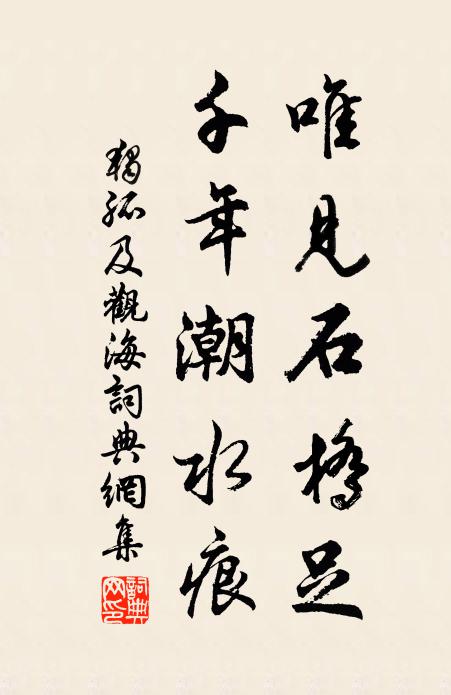 唯見石橋足
千年潮水痕
獨孤及觀海詞典網集
詞典網印